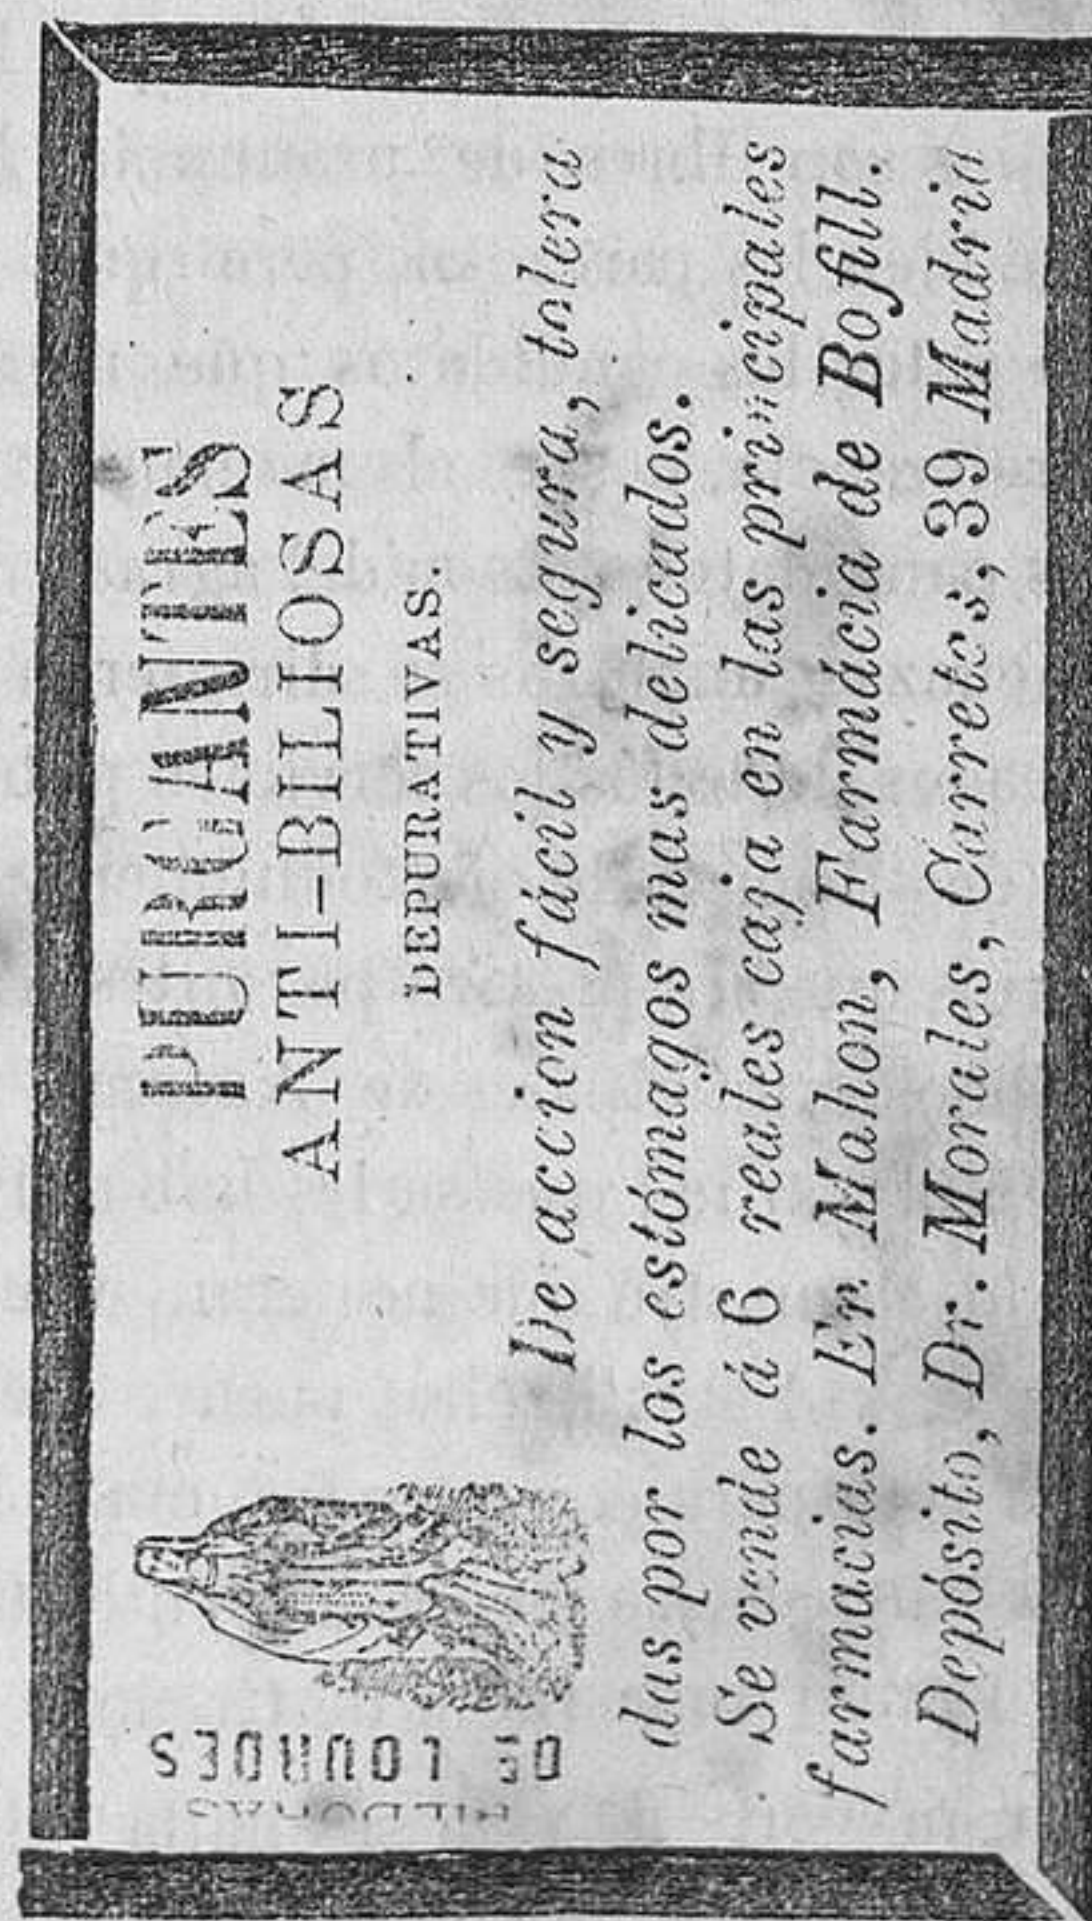 PILDORAS
DE LOURDES
PURGANTES
ANTI-BILIOSAS
DEPURATIVAS.
De accion fácil y segura, tolera
das por los estómagos mas delicados.
Se vende á 6 reales caja en las principales
farmacias. En Mahon, Farmácia de Bofill.
Depósito, Dr. Morales, Carretas, 39 Madrid